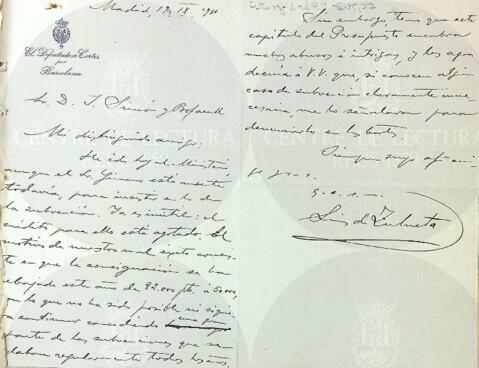 Madrid, 19, IX, 911
El Diputado a Cortes
por
Barcelona
Sr. D. J. Simón y Bofarull
Mi distinguido amigo:
He ido hoy al Ministerio,
aunque el Sr. Gimeno está ausente
todavía, para insistir en lo de
la subvención. Ya es inutil: el
crédito para ello está agotado. El
motivo de nuestro mal éxito consis-
te en que la consignación se ha
rebajado este año de 92.000 pts. á 60.000,
por lo que no ha sido posible ni siquie-
ra continuar concediendo una gran
parte de las subvenciones que se
daban regularmente todos los años.
Sin embargo, temo que este
capítulo del Presupuesto encubra
muchos abusos é intrigas, y les agra-
decería á V.V. que, si conocen algún
caso de subvención claramente inne-
cesaria, me lo señalaran para
denunciarlo en las Cortes.
Siempre suyo afmo. ami-
go
q. e. s. m.
Luis de Zulueta
CENTRE DE LECTURA